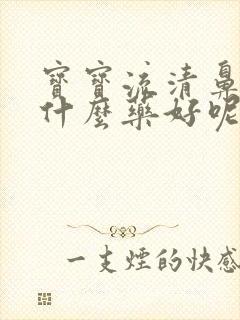 寶寶流清鼻
什麼藥好呢
一支煙的快感